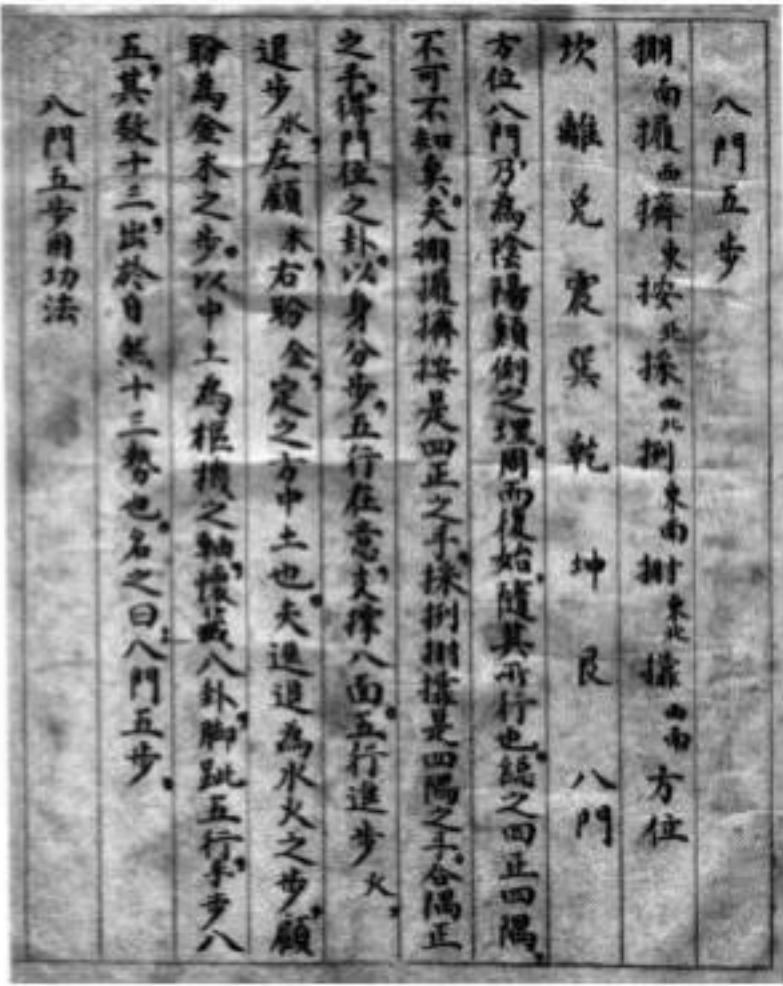 八門五步
掤南攦西擠東按北採西北挒東南㨈東北攥西南方位
坎離兌震巽乾坤艮八門
方位八門乃為陰陽顛倒之理周而復始隨其所行也總之四正四隅
不可不知矣夫掤攦擠按是四正之手採挒㨈攥是四隅之手合隅正
之手得門位之卦以身分步五行在意支撑八面五行進步火
退步水左顧木右盼金定之方中土也夫進退為水火之步顧
盼為金木之步以中土為樞機之軸懷藏八卦脚跐五行手步八
五其数十三出於自然十三勢也名之曰八門五步
八門五步用功法